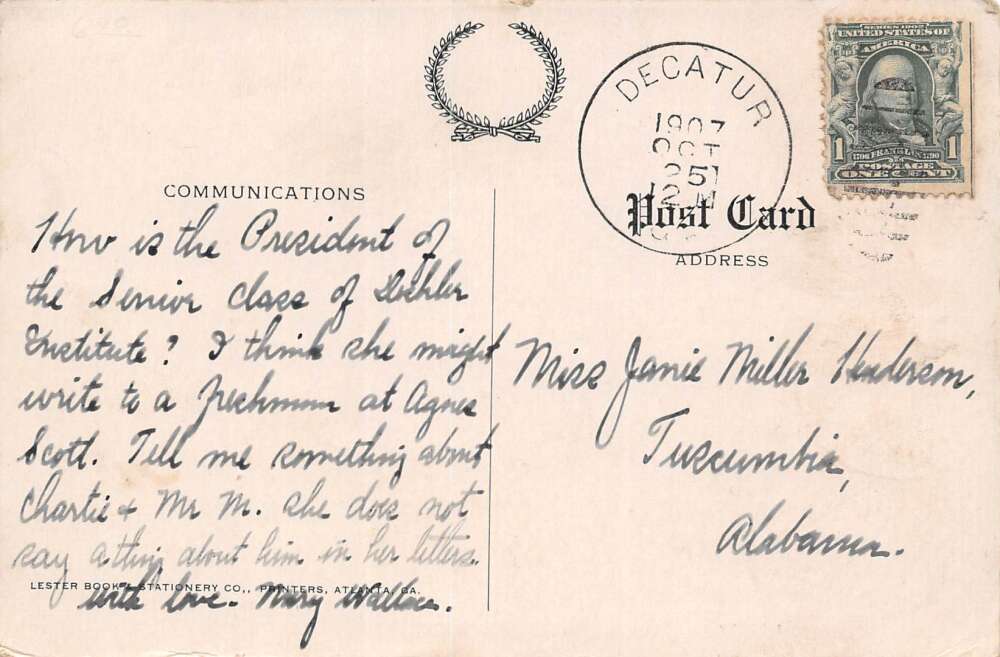 SERIES 1902
UNITED STATES OF
AMERICA
1
1706 FRANKLIN 1790
1
POSTAGE
ONE CENT
DECATUR
1907
OCT
25
12 M
Post Card
COMMUNICATIONS
ADDRESS
How is the President of
the Senior class of Deshler
Institute? I think she might
write to a freshman at Agnes
Scott. Tell me something about
Chartie & Mr M. she does not
say a thing about him in her letters.
with love. Mary Wallace.
LESTER BOOK & STATIONERY CO., PRINTERS, ATLANTA, GA.
Miss Janie Miller Henderson,
Tuscumbia,
Alabama.